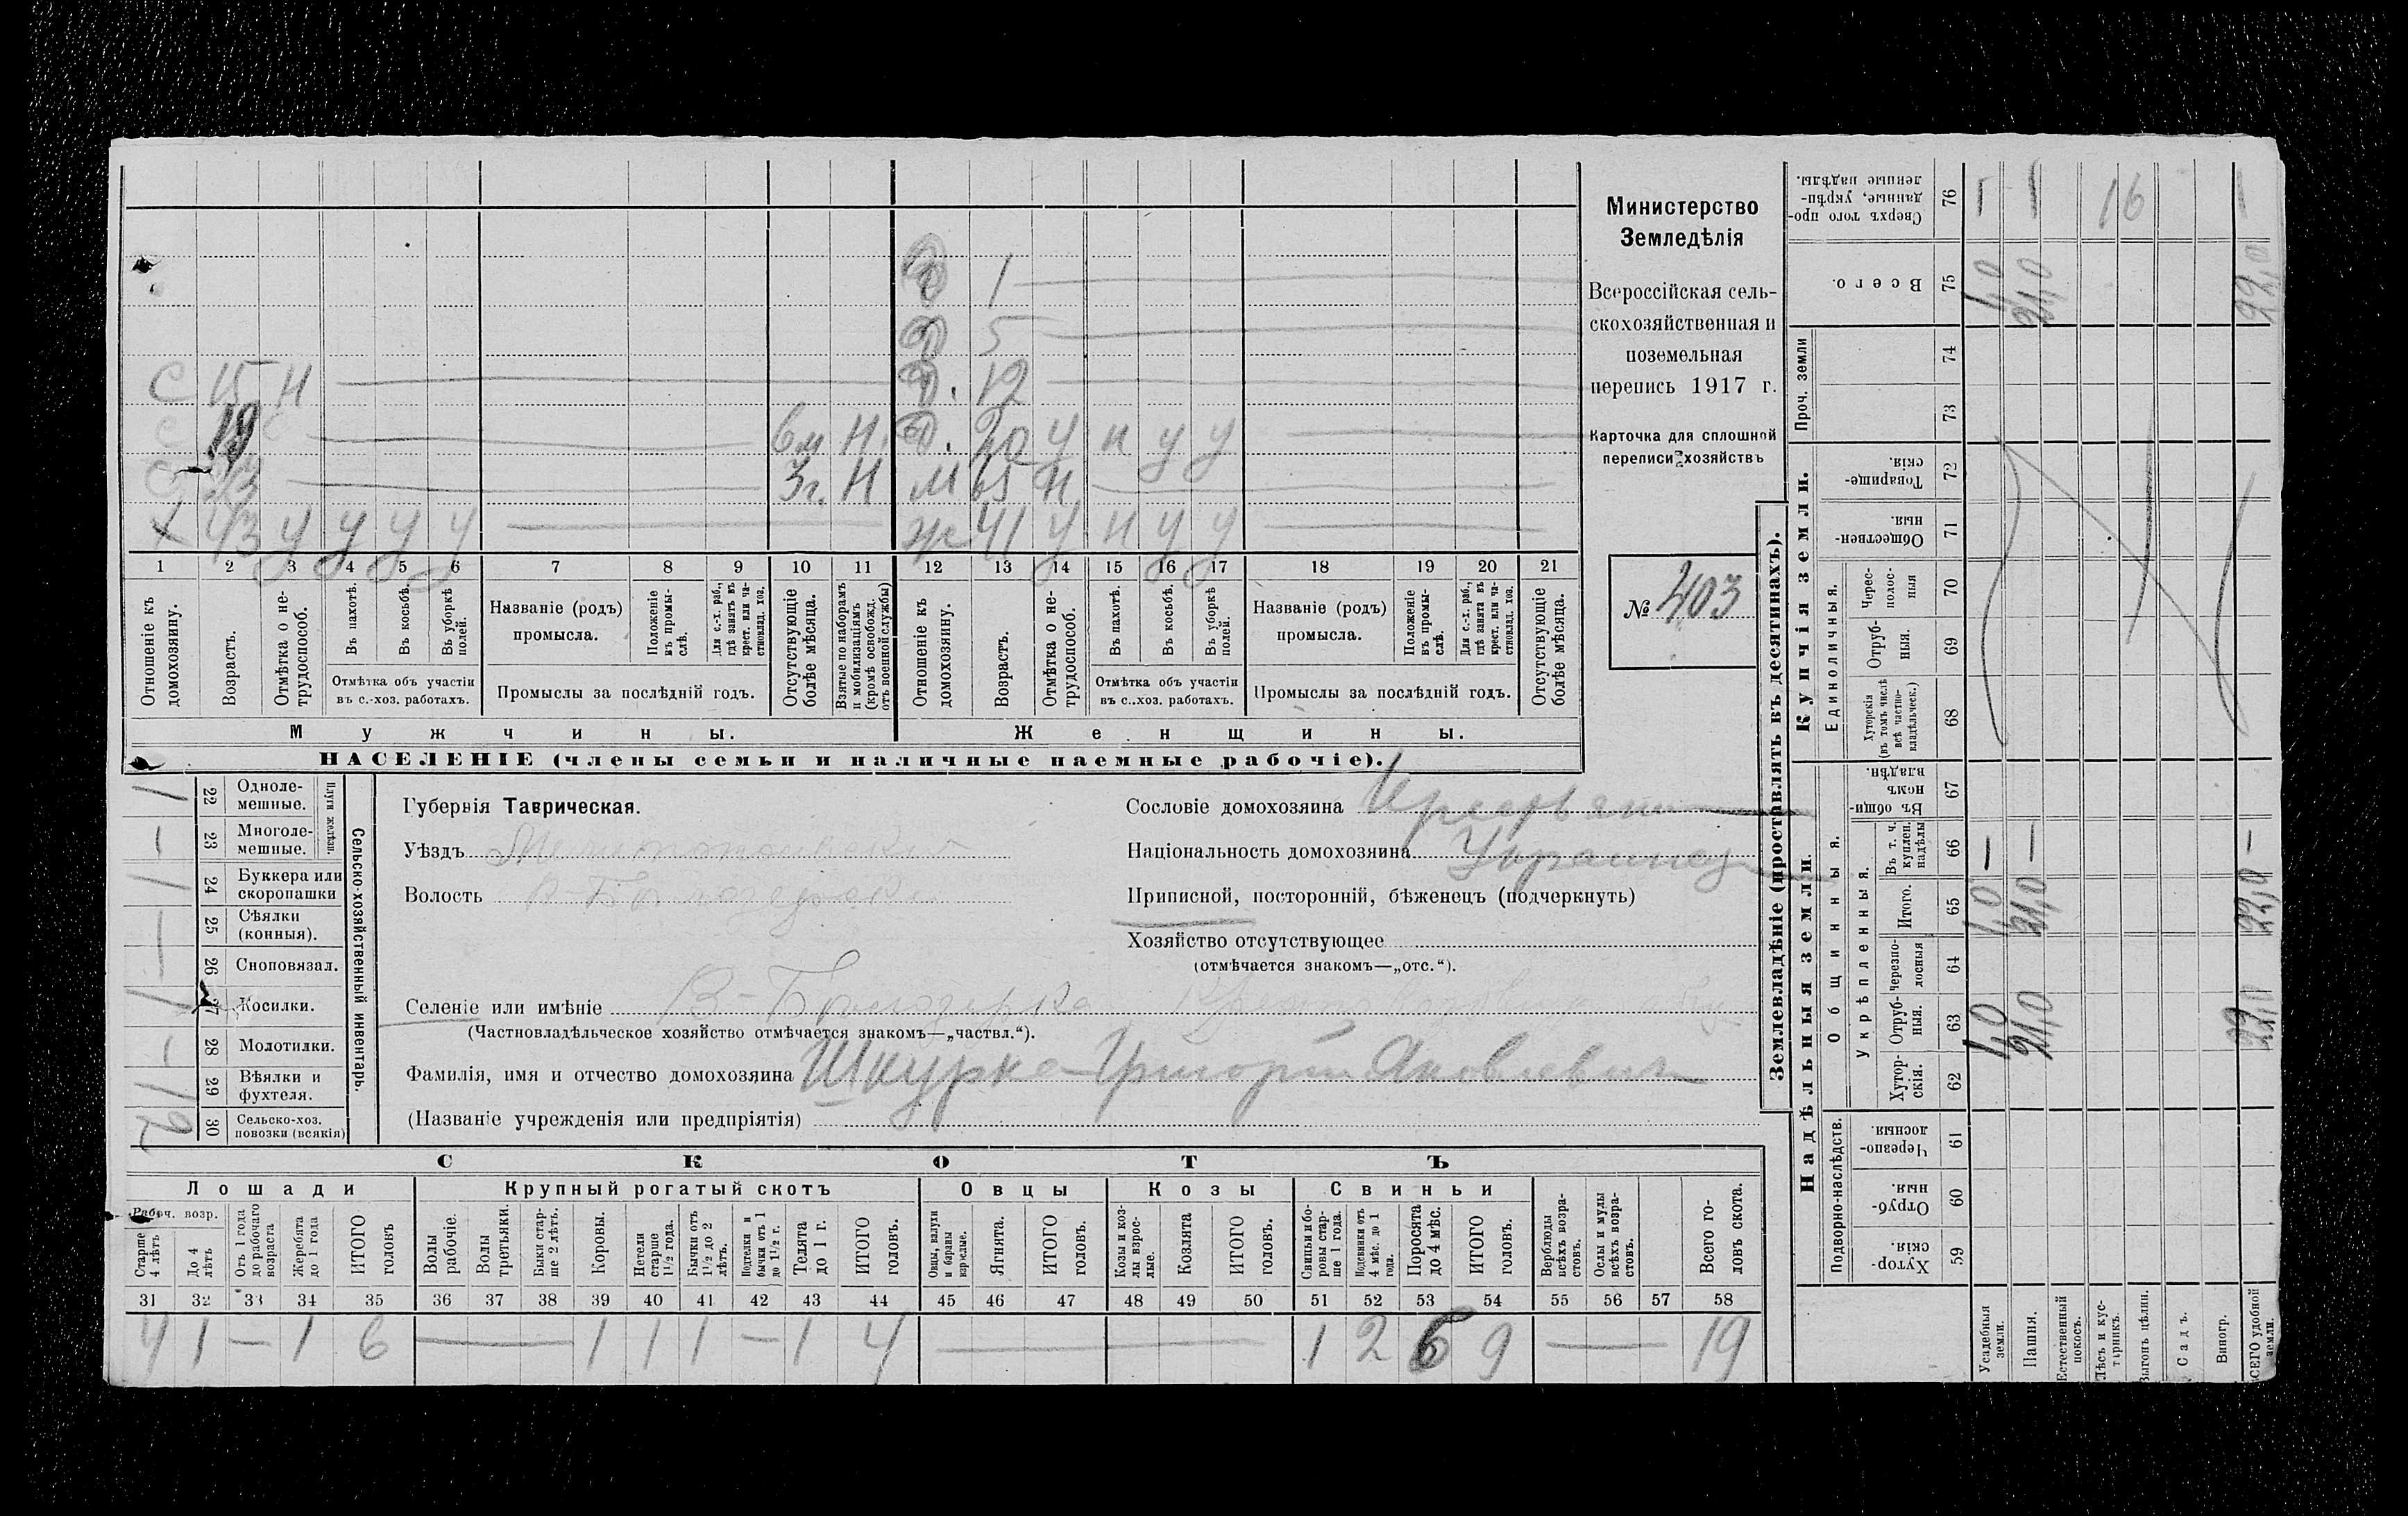 Министерство
Земледѣлія
Всероссійская сель-
скохозяйственная и
поземельная
перепись 1917 г.
Карточка для сплошной
переписи хозяйствъ
№ 403
С 15 Н
19 6м Н.
3г. Н
Х 43 У У У У
Д 1
Д 5
Д. 12
Д. 20 У Н У У
М 65 Н
Ж 41 У Н У У
1 2 3 4 5 6 7 8 9 10 11 12 13 14 15 16 17 18 19 20 21
Отношеніе къ домохозяину.
Возрастъ.
Отмѣтка о не-трудоспособ.
Въ пахотѣ.
Въ косьбѣ.
Въ уборкѣ полей.
Отмѣтка объ участіи
въ с.-хоз. работахъ.
Названіе (родъ)
промысла.
Положеніе въ промы-слѣ.
Для с.-х. раб., гдѣ занятъ въ крест. или ча-стновлад. хоз.
Промыслы за послѣдній годъ.
Отсутствующіе болѣе мѣсяца.
Взятые по наборамъ и мобилизаціямъ (кромѣ освобожд. отъ военной службы)
Отношеніе къ домохозяину.
Возрастъ.
Отмѣтка о не-трудоспособ.
Въ пахотѣ.
Въ косьбѣ.
Въ уборкѣ полей.
Отмѣтка объ участіи
въ с.-хоз. работахъ.
Названіе (родъ)
промысла.
Положеніе въ промы-слѣ.
Для с.-х. раб., гдѣ занята въ крест. или ча-стновлад. хоз.
Промыслы за послѣдній годъ.
Отсутствующіе болѣе мѣсяца.
Мужчины.
Женщины.
НАСЕЛЕНІЕ (члены семьи и наличные наемные рабочіе).
Сельско-хозяйственный инвентарь.
Плуги желѣзн.
22 Одноле-мешные. 1
23 Многоле-мешные. —
24 Буккера или скоропашки 1
25 Сѣялки (конныя). —
26 Сноповязал. —
27 Косилки. 1
28 Молотилки. —
29 Вѣялки и фухтеля. 1
30 Сельско-хоз. повозки (всякія) 2
Губернія Таврическая.
Уѣздъ Мелитопольскій
Волость В-Бѣлозерск
Селеніе или имѣніе В-Бѣлозерка
(Частновладѣльческое хозяйство отмѣчается знакомъ—„частвл.“).
Фамилія, имя и отчество домохозяина Шкурка Григорій Яковлевичъ
(Названіе учрежденія или предпріятія)
Сословіе домохозяина Крестьян
Національность домохозяина Украинец
Приписной, посторонній, бѣженецъ (подчеркнуть)
Хозяйство отсутствующее
(отмѣчается знакомъ—„отс.“).
СКОТЪ
Лошади Крупный рогатый скотъ Овцы Козы Свиньи
Рабоч. возр.
Старше 4 лѣтъ
До 4 лѣтъ
Отъ 1 года до рабочаго возраста
Жеребята до 1 года
ИТОГО головъ
Волы рабочіе.
Волы третьяки.
Быки стар-ше 2 лѣтъ.
Коровы.
Нетели старше 1½ года.
Бычки отъ 1½ до 2 лѣтъ.
Подтелки и бычки отъ 1 до 1½ г.
Телята до 1 г.
ИТОГО головъ.
Овцы, валухи и бараны взрослые.
Ягнята.
ИТОГО головъ.
Козы и коз-лы взрос-лые.
Козлята
ИТОГО головъ.
Свиньи и бо-ровы стар-ше 1 года.
Подсвинки отъ 4 мѣс. до 1 года.
Поросята до 4 мѣс.
ИТОГО головъ.
Верблюды всѣхъ возра-стовъ.
Ослы и мулы всѣхъ возра-стовъ.
Всего го-ловъ скота.
31 32 33 34 35 36 37 38 39 40 41 42 43 44 45 46 47 48 49 50 51 52 53 54 55 56 57 58
4 1 — 1 6 — 1 1 1 — 1 4 — 1 2 6 9 — 19
Землевладѣніе (проставлять въ десятинахъ).
Купчія земли.
Надѣльныя земли.
Единоличныя.
Общинныя.
Укрѣпленныя.
Подворно-наслѣдств.
Проч. земли
76 Сверхъ того про-данные, укрѣп-ленные надѣлы. — — 16 —
75 Всего. 1,0 21,0 22,0
74
73
72 Товарище-скія.
71 Обществен-ныя.
70 Черес-полос-ныя
69 Отруб-ныя.
68 Хуторскія (въ томъ числѣ всѣ частно-владѣльческ.)
67 Въ общин-номъ владѣн.
66 Въ т. ч. куплен. надѣлы — — —
65 Итого. 1,0 21,0 22,0
64 Черезпо-лосныя
63 Отруб-ныя. 1,0 21,0 22,0
62 Хутор-скія.
61 Черезпо-лосныя.
60 Отруб-ныя.
59 Хутор-скія
Усадебныя земли.
Пашня.
Естественный покосъ.
Лѣсъ и кус-тарникъ.
Выгонъ цѣлин.
Садъ.
Виногр.
ВСЕГО удобной земли.